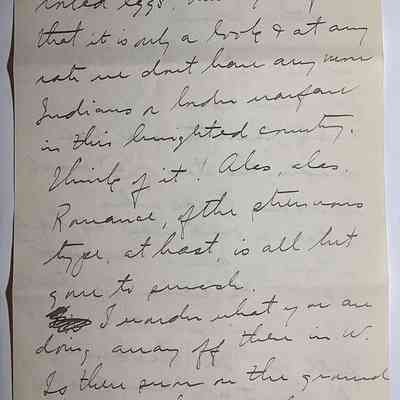 eggs,
that it is only a book & at any
rate we don't have any more
Indians or border warfare
in this benighted country.
Think of it! Alas, alas.
Romance, of the strenuous
type, at least, is all but
gone to smash.
I wonder what you are
doing away off there in W.
Is there snow on the ground